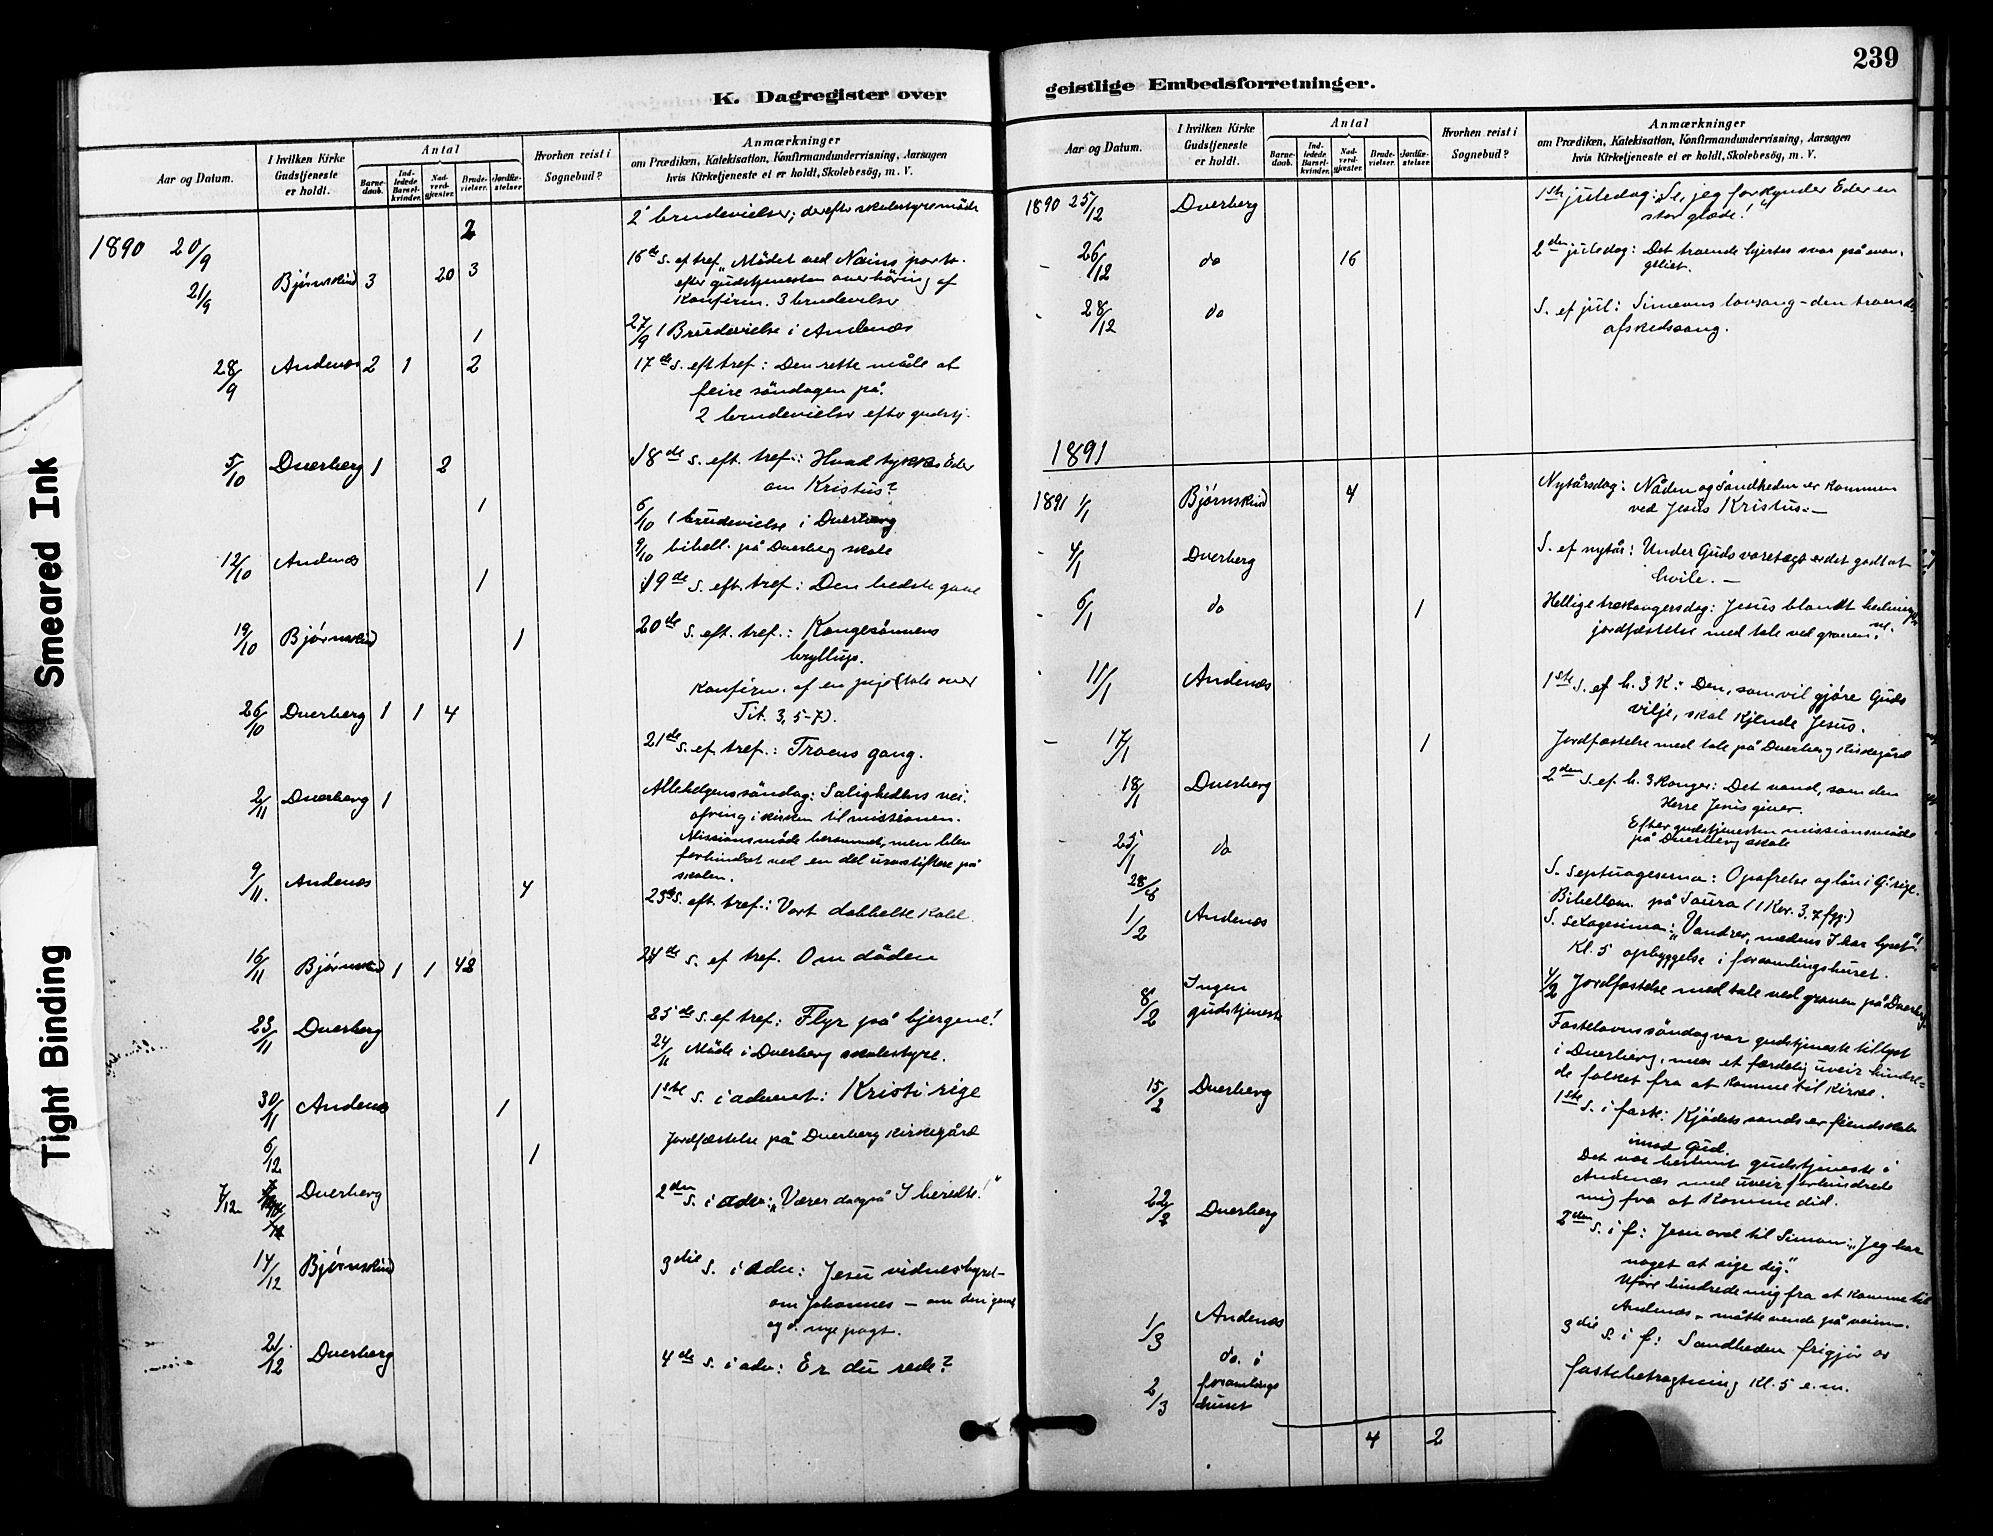 Smeared Ink
Tight Binding
K. Dagregister over
Aar og Datum.
I hvilken Kirke Gudstjeneste er holdt.
Antal
Barne-daab.
Ind-ledede Barsel-kvinder.
Nad-verd-gjæster.
Brude-vielser.
Jordfæ-stelser
Hvorhen reist i Sognebud?
Anmærkninger
om Prædiken, Katekisation, Konfirmandundervisning, Aarsagen
hvis Kirketjeneste ei er holdt, Skolebesög, m. V.
1890 20/9 2 2 brudevielser; derefter skolestyremöde
21/9 Bjørnskind 3 20 3 16de s. ef tref. „Mödet ved Nains port".
efter gudstjenesten overhöring af
Konfirm. 3 brudevielser
1 27/9 1 Brudevielse i Andenæs
28/9 Andenæs 2 1 2 17de s. eft tref: Den rette måde at
feire söndagen på.
2 brudevielser efter gudstj.
5/10 Dverberg 1 2 18de s. eft. tref.: Hvad tykkes Eder
om Kristus?
1 6/10 1 brudevielse i Dverberg
9/10 bibell. på Dverberg skole
12/10 Andenæs 1 19de s. eft. tref: Den bedste gave
19/10 Bjørnskind 1 20de s. eft. tref.: Kongesönnens
bryllup.
Konfirm. af en pige (tale over
Tit. 3, 5-7).
26/10 Dverberg 1 1 4
21de s. ef tref.: Troens gang.
2/11 Dverberg 1 Allehelgenssöndag: Salighedens vei.
ofring i kirken til missionen.
Missionsmöde berammet, men blev
forhindret ved en del urostiftere på
skolen.
9/11. Andenæs 4
23de s. eft. tref.: Vort dobbelte kald.
16/11 Bjørnskind 1 1 42 24de s. ef tref. Om döden
23/11 Dverberg 25de s. ef tref: Flyr på bjergene!
24/11 Möde i Dverberg skolestyre.
30/11 Andenæs 1 1ste s. i advent: Kristi rige
6/12 1 Jordfæstelse på Dverberg kirkegård
7/12 Dverberg 2den s. i adv: „Værer dog på I beredte!"
14/12 Bjørnskind 3die s. i adv: Jesu vidnesbyrd
om Johannes – om den gamle
og d. nye pagt.
21/12 Dverberg 4de s. i adv: Er du rede?
239
geistlige Embedsforretninger.
Aar og Datum.
I hvilken Kirke Gudstjeneste er holdt.
Antal
Barne-daab.
Ind-ledede Barsel-kvinder.
Nad-verd-gjæster.
Brude-vielser.
Jordfæ-stelser
Hvorhen reist i Sognebud?
Anmærkninger
om Prædiken, Katekisation, Konfirmandundervisning, Aarsagen
hvis Kirketjeneste ei er holdt, Skolebesög, m. V.
1890 25/12 Dverberg 1ste juledag: „Se, jeg forkynder Eder en
stor glæde!"
26/12 do 16 2den juledag: Det troende hjertes svar på evan-
geliet.
28/12 do S. ef jul: Simeons lovsang – den troendes
afskedssang.
1891
1891 1/1 Bjørnskind 4 Nytårsdag: Nåden og Sandheden er kommen
ved Jesus Kristus. –
4/1 Dverberg S. ef nytår: Under Guds varetægt er det godt at
hvile. –
6/1 do 1 Hellige trekongersdag: Jesus blandt hedningerne.
jordfæstelse med tale ved graven.
11/1 Andenæs 1ste s. ef h. 3 K: Den, som vil gjöre Guds
vilje, skal kjende Jesus.
17/1 1 Jordfæstelse med tale på Dverberg kirkegård
18/1 Dverberg 2den s. ef. h. 3 Konger: Det vand, som den
Herre Jesus giver.
Efter gudstjenesten missionsmöde
på Dverberg skole
25/1 do S. septuagesima: Opofrelse og lön i G. rige.
28/ Bibellæsn. på Saura (1 Kor. 3, 7 fg.)
1/2 Andenæs S. sexagesima: „Vandrer, medens I har lyset"!
Kl. 5 opbyggelse i forsamlingshuset.
4/2 Jordfæstelse med tale ved graven på Dverberg
8/2 Ingen
gudstjeneste
Fastelavnssöndag var gudstjeneste tillyst
i Dverberg, men et færdelig uveir hindre-
de folket fra at komme til kirke.
15/2 Dverberg 1ste s. i faste: Kjödets sands er fiendskab
imod Gud.
Det var bestemt gudstjeneste i
Andenæs med uveir forhindrede
mig fra at komme did.
22/2 Dverberg 2den s. i f: Jesu ord til Simon: „Jeg har
noget at sige dig".
Uföre hindrede mig fra at komme til
Andenæs – måtte vende på veien.
1/3 Andenæs 3die s. i f: Sandheden frigjör os
2/3 do. i
forsamlings
huset
fastebetragtning Kl. 5 e.m.
4 2